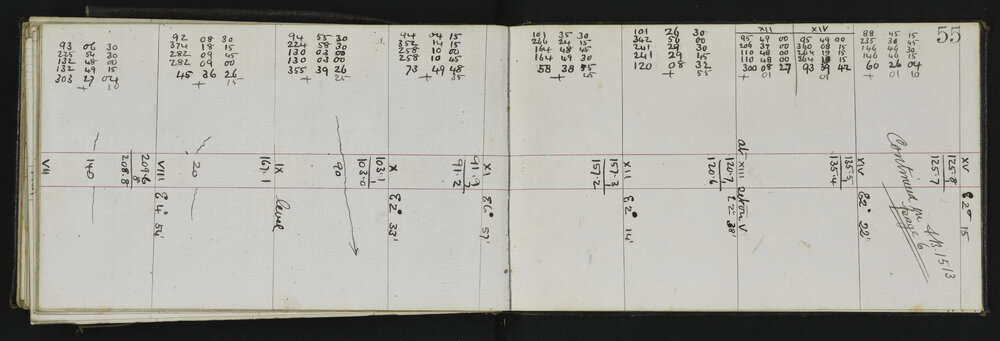 55
93 06 30
225 54 30
132 48 00
132 49 15
303 27 04
+ 10
92 08 30
374 18 15
282 09 45
282 09 00
45 36 26
+ 15
94 55 30
224 58 30
130 03 00
130 03 00
355 39 26
+ 25
94 04 15
352 14 15
258 10 00
258 10 45
73 49 48
+ 35
101 35 30
266 24 15
164 48 45
164 49 30
58 38 55
+ 45
101 26 30
342 56 00
241 29 30
241 29 45
120 08 32
+ 55
XII
95 49 00
209 37 00
110 48 00
110 48 00
300 08 27
+ 01
XIV
95 49 00
360 08 15
264 19 15
93 39 47
01
88 45 15
235 30 45
146 46 30
146 46 15
60 26 04
+ 01 10
VII
140
208.8
8
209.6
VIII
E 4° 54'
20
167.1
IX
level
90
103.0
1
103.1
X
E 2° 33'
91.2
7
91.9
XI
E 6° 57'
157.2
1
157.3
XII
E 2° 14'
120.6
1
120.7
at XIII return V
E 2° 38'
135.4
1
135.5
XIV
E 2° 22'
125.7
1
125.8
XV
E 2° 15
Continued in
LB 1513
page 6